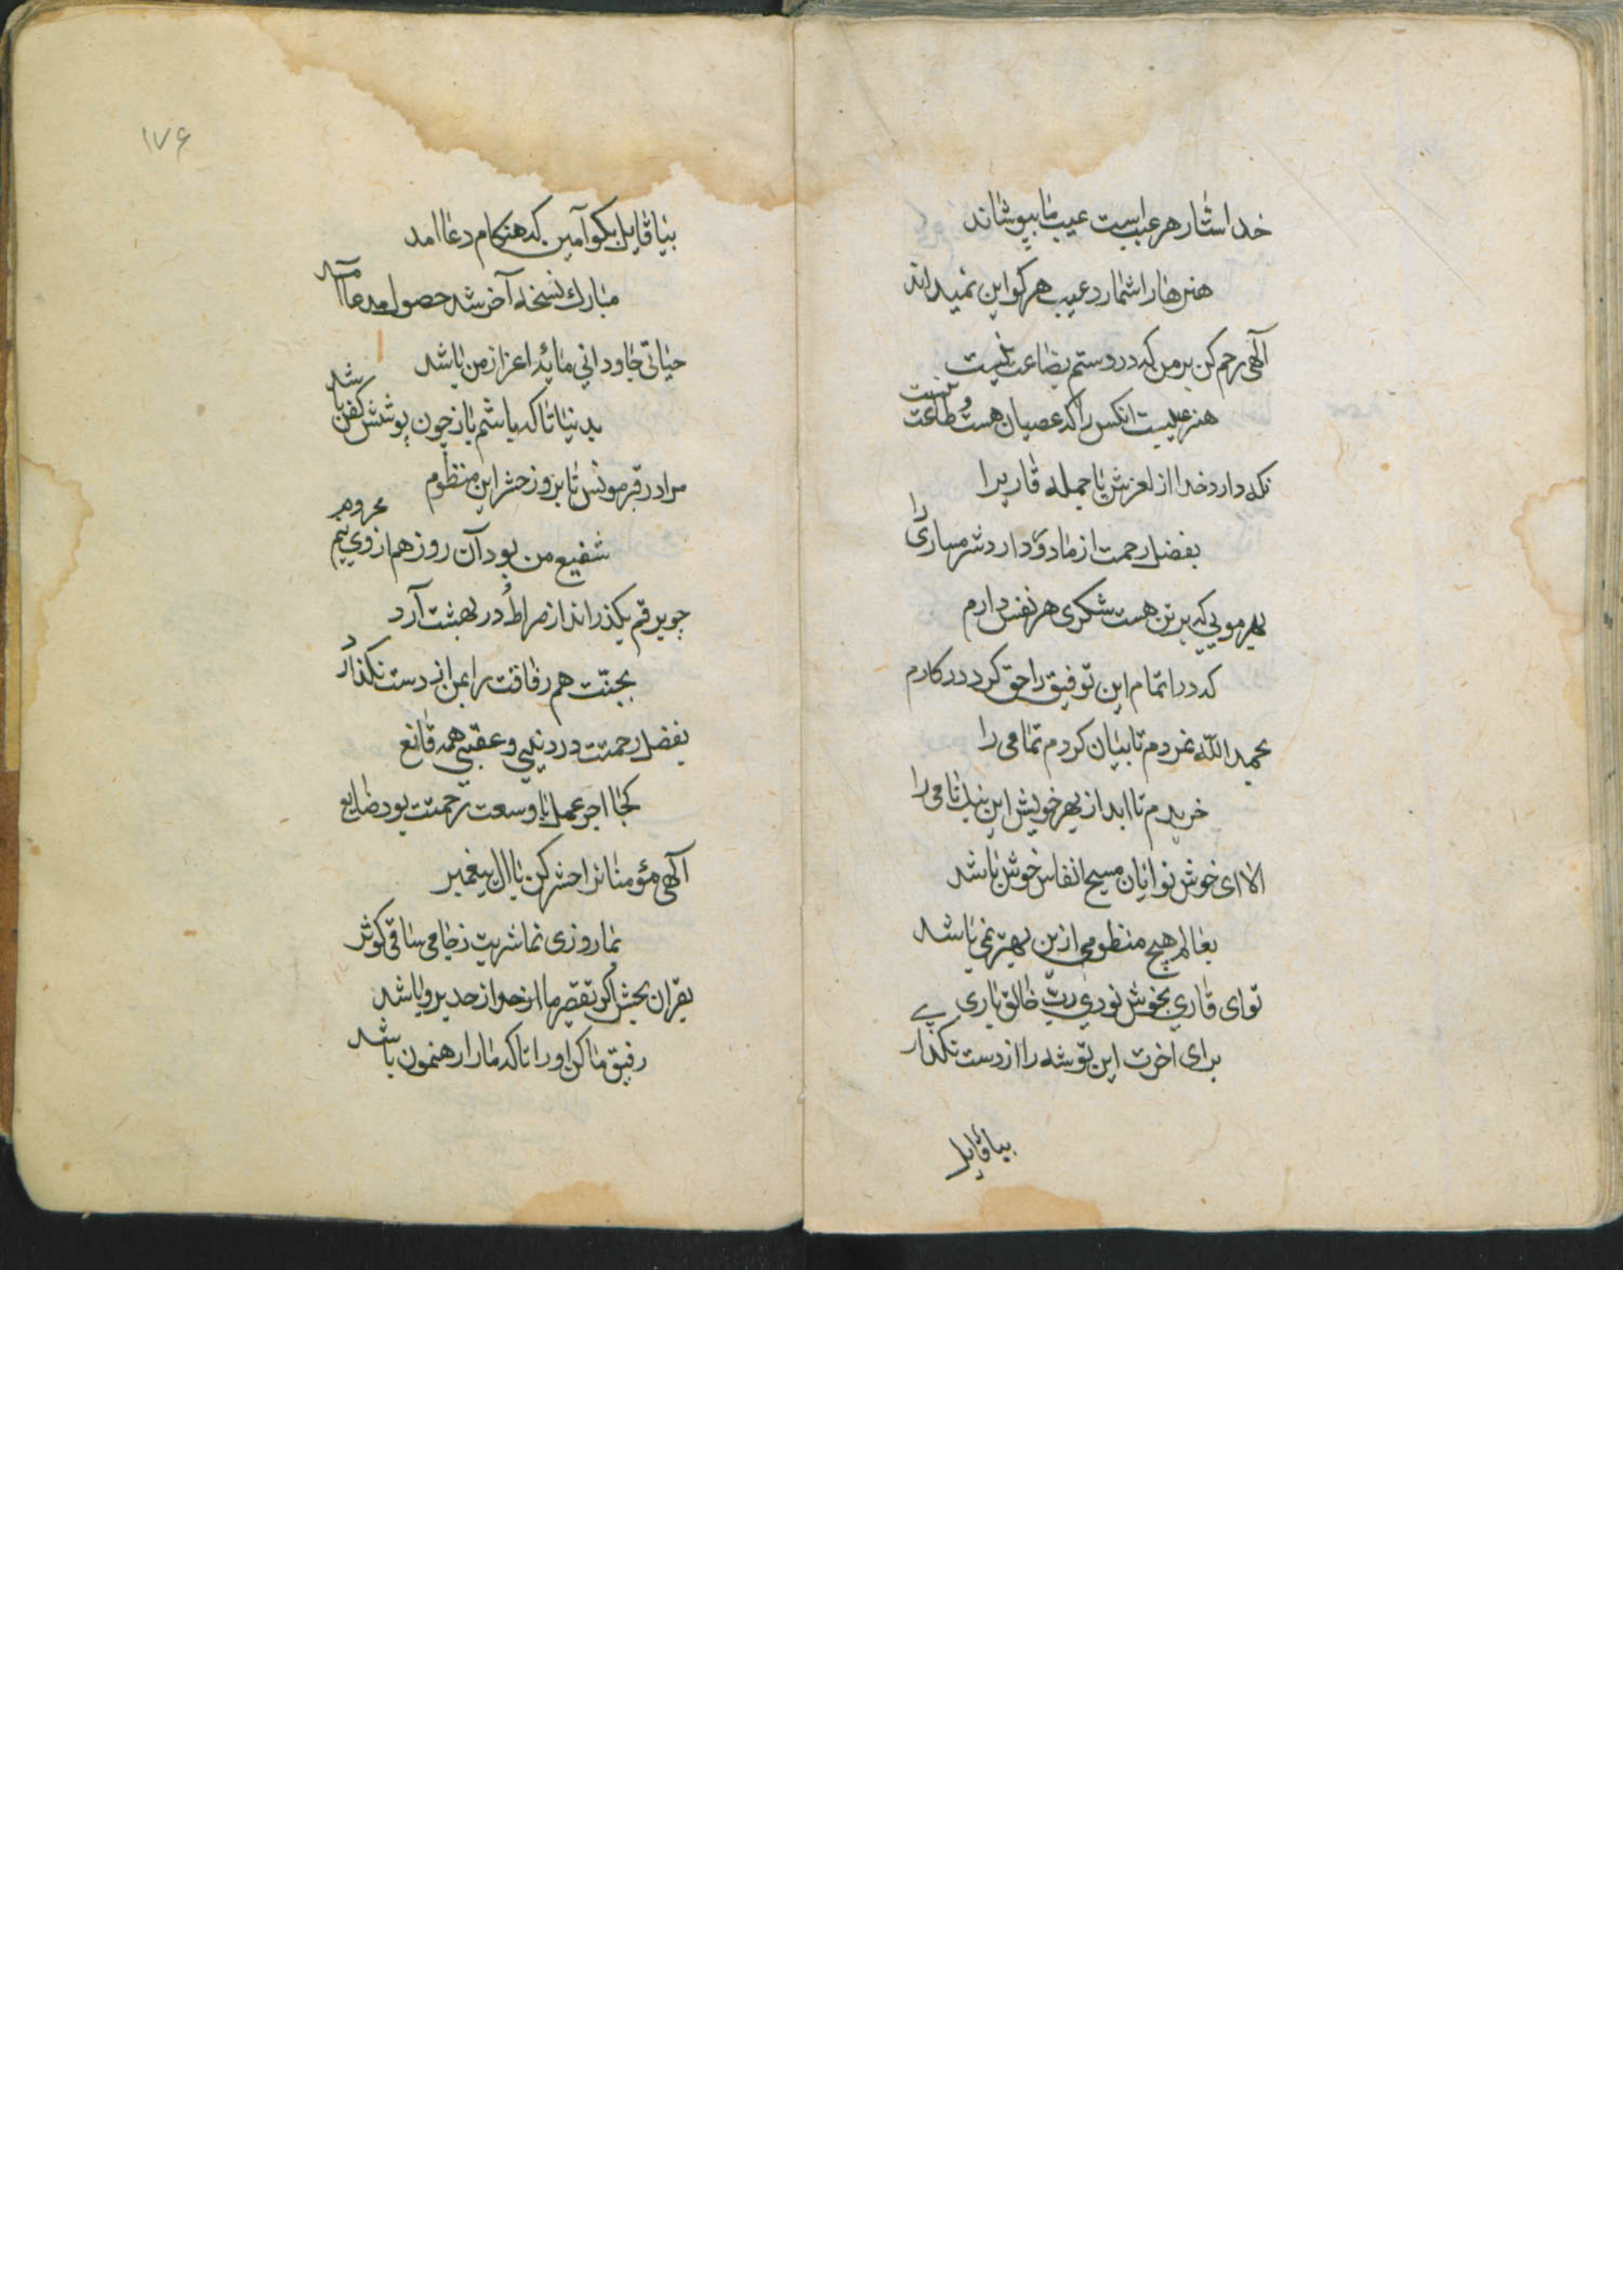 خدا ستار هر عیب است عیب ما بپوشاند
هنرها را شمارد عیب هر کو این نمیداند
آلهی رحم کن بر من که در دستم بضاعت نیست
هنر عیبست انکس را که عصیان هست و طاعت نیست
نکه دارد خدا از لغزش پا جمله قاری را
بفضل رحمت از ما دور دارد شرمساری را
بهر مویی که بر تن هست شکری هر نفس دارم
که در اتمام این توفیق را حق کرد در کارم
بحمدالله نمردم تا بیان کردم تمامی را
خریدم تا ابد از بهر خویش این نیک نامی را
الا ای خوش نوایان مسیح انفاس خوش باشد
بعالم هیچ منظومی ازین بهتر نمی باشد
توای قاری بخوشنودی رب خالق باری
برای اخرت این توشه را از دست نکذاری
بیا قایل
۱۷۶
بیا قایل بکو آمین که هنکام دعا امد
مبارک نسخه آخر شد حصول مدعا آمد
حیاتی جاودانی مایه اعزاز من باشد
بدنیا تا که باشم باز چون پوشش کفن باشد
مرا در قبر مونس تا بروز حشر این منظوم
شفیع من بود آن روز هم از وی نیم محروم
چو برقم بکذراند از صراط و در بهشت آرد
بجنت هم رفاقت را بمن از دست نکذارد
بفضل رحمتت در دنیی و عقبی همه قانع
کجا اجر عمل با وسعت رحمت بود ضایع
آلهی مؤمنانرا حشر کن با ال پیغمبر
بما روزی نما شربت ز جامی ساقی کوثر
بقران بخش اکر تقصیر ما از حد برون باشد
رفیق ما کن او را تا که ما را رهنمون باشد